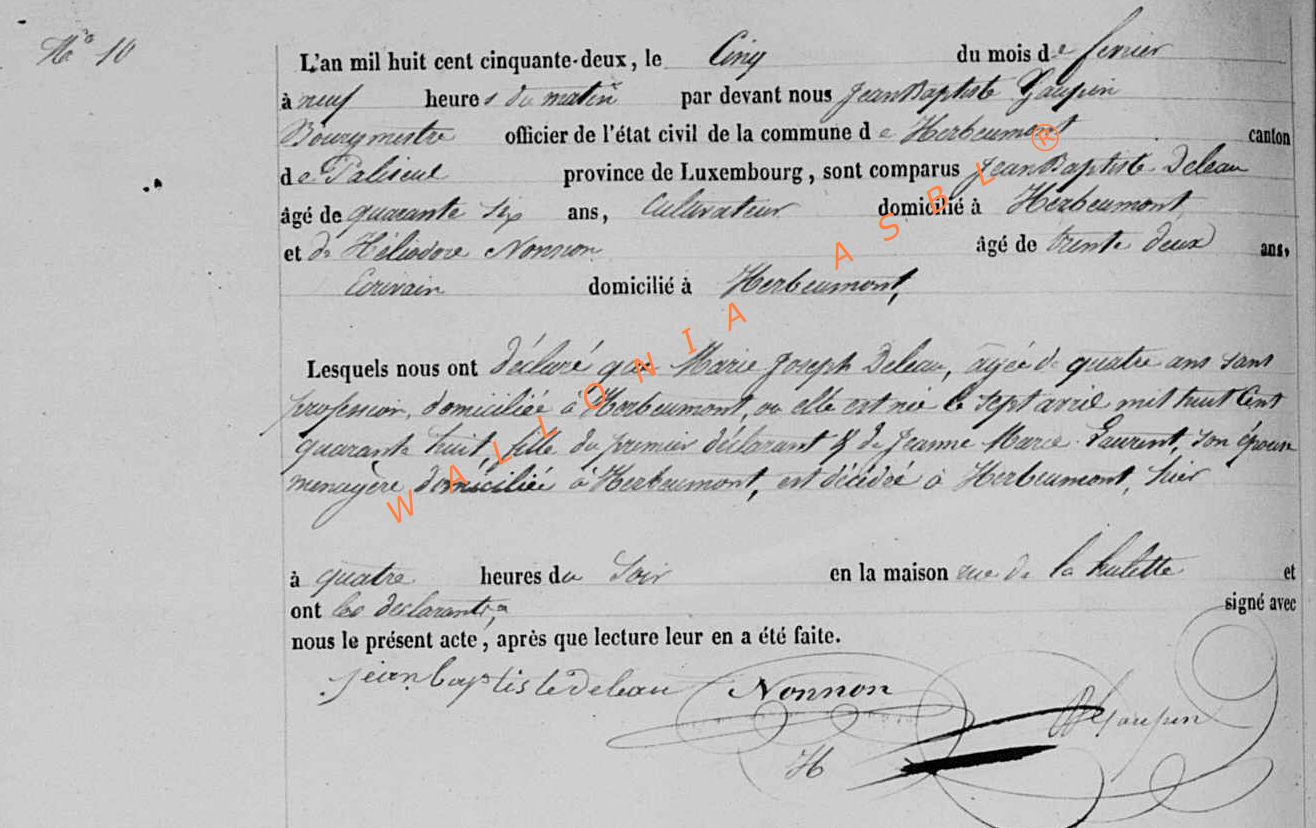 N° 10
L'an mil huit cent cinquante-deux, le Cinq du mois de fevrier
à neuf heures du matin par devant nous Jean Baptiste Gaupin
Bourgmestre officier de l'état civil de la commune de Herbeumont canton
de Paliseul province de Luxembourg, sont comparus Jean Baptiste Deleau
âgé de quarante six ans, Cultivateur domicilié à Herbeumont
et de Héliodore Nonnon âgé de trente deux ans,
Ecrivain domicilié à Herbeumont,
Lesquels nous ont déclaré que Marie Joseph Deleau, agée de quatre ans sans
profession, domiciliée à Herbeumont, ou elle est née le sept avril mil huit Cent
quarante huit, fille du premier déclarant & de Jeanne Marie Laurent, son épouse
menagère domiciliée à Herbeumont, est décédée à Herbeumont, hier
à quatre heures du Soir en la maison rue de la hulette et
ont les déclarants, signé avec
nous le présent acte, après que lecture leur en a été faite.
jean baptiste deleau Nonnon Gaupin
H
WALLONIA ASBL ®